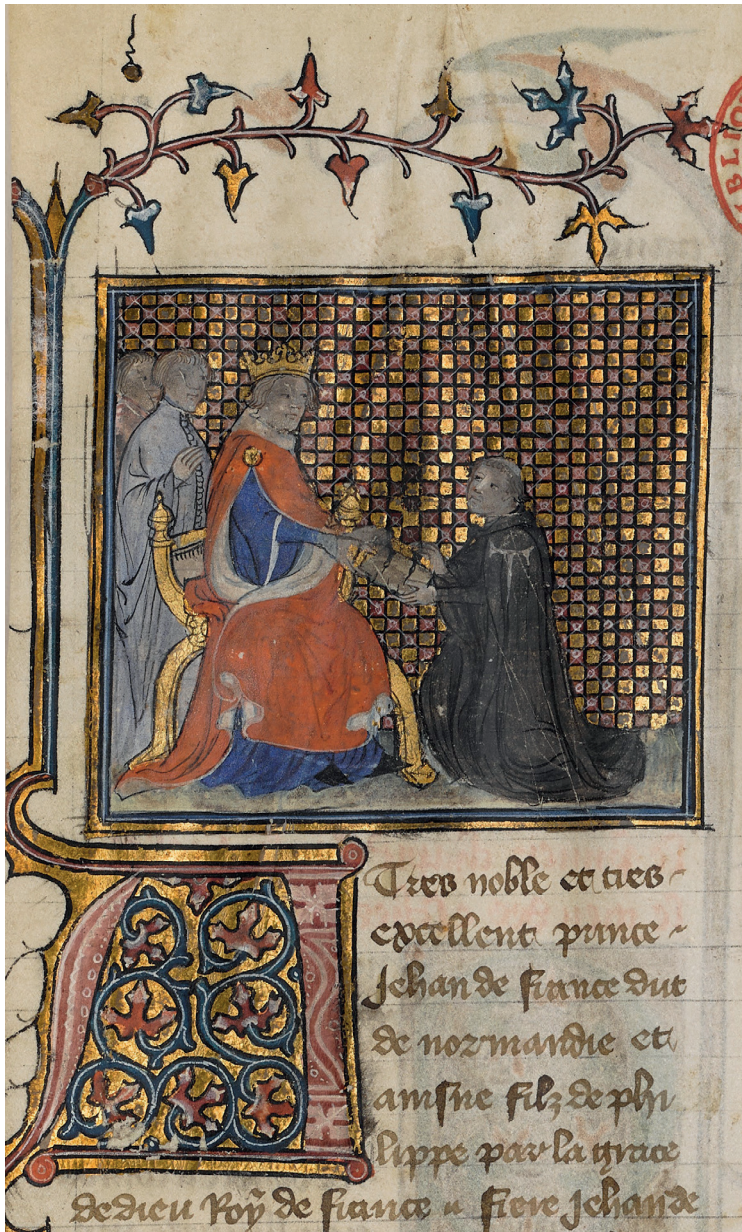 BLIO
A
Tres noble et tres
excellent prince
Jehan de france duc
de normandie et
ainsne filz de phi
lippe par la grace
de dieu Roy de france frere Jehan de